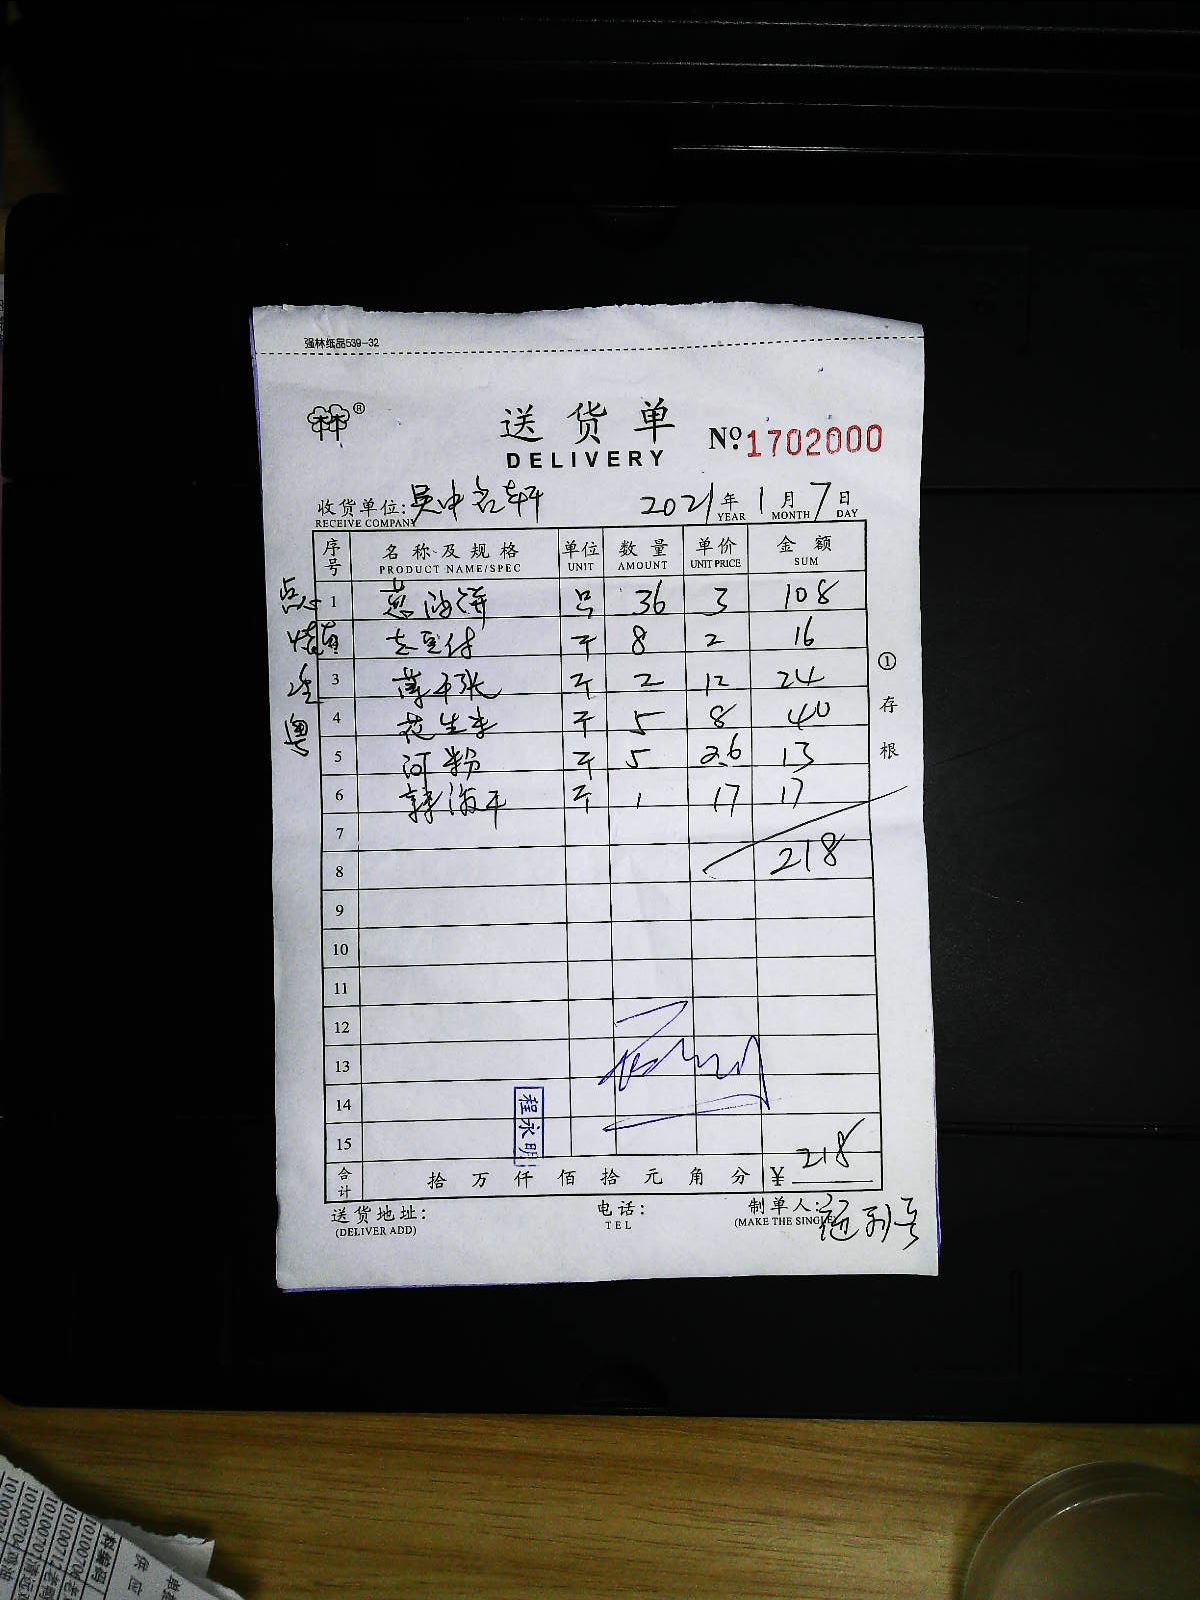 强林纸品539-32
林林®
送货单
DELIVERY
No. 1702000
收货单位: 吴中名轩 2021年1月7日
RECEIVE COMPANY YEAR MONTH DAY
序号 名称及规格 单位 数量 单价 金额
PRODUCT NAME/SPEC UNIT AMOUNT UNIT PRICE SUM
点心 1 葱油饼 只 36 3 108
老豆付 斤 8 2 16
3 薄千张 斤 2 12 24
粤 4 花生米 斤 5 8 40
5 河粉 斤 5 2.6 13
6 斤 1 17 17
7
8 218
9
10
11
12
13
14
15
程永明
合计 拾万仟佰拾元角分 ¥ 218
送货地址: 电话: 制单人:
(DELIVER ADD) TEL (MAKE THE SINGLE
①存根
10100704鸡油